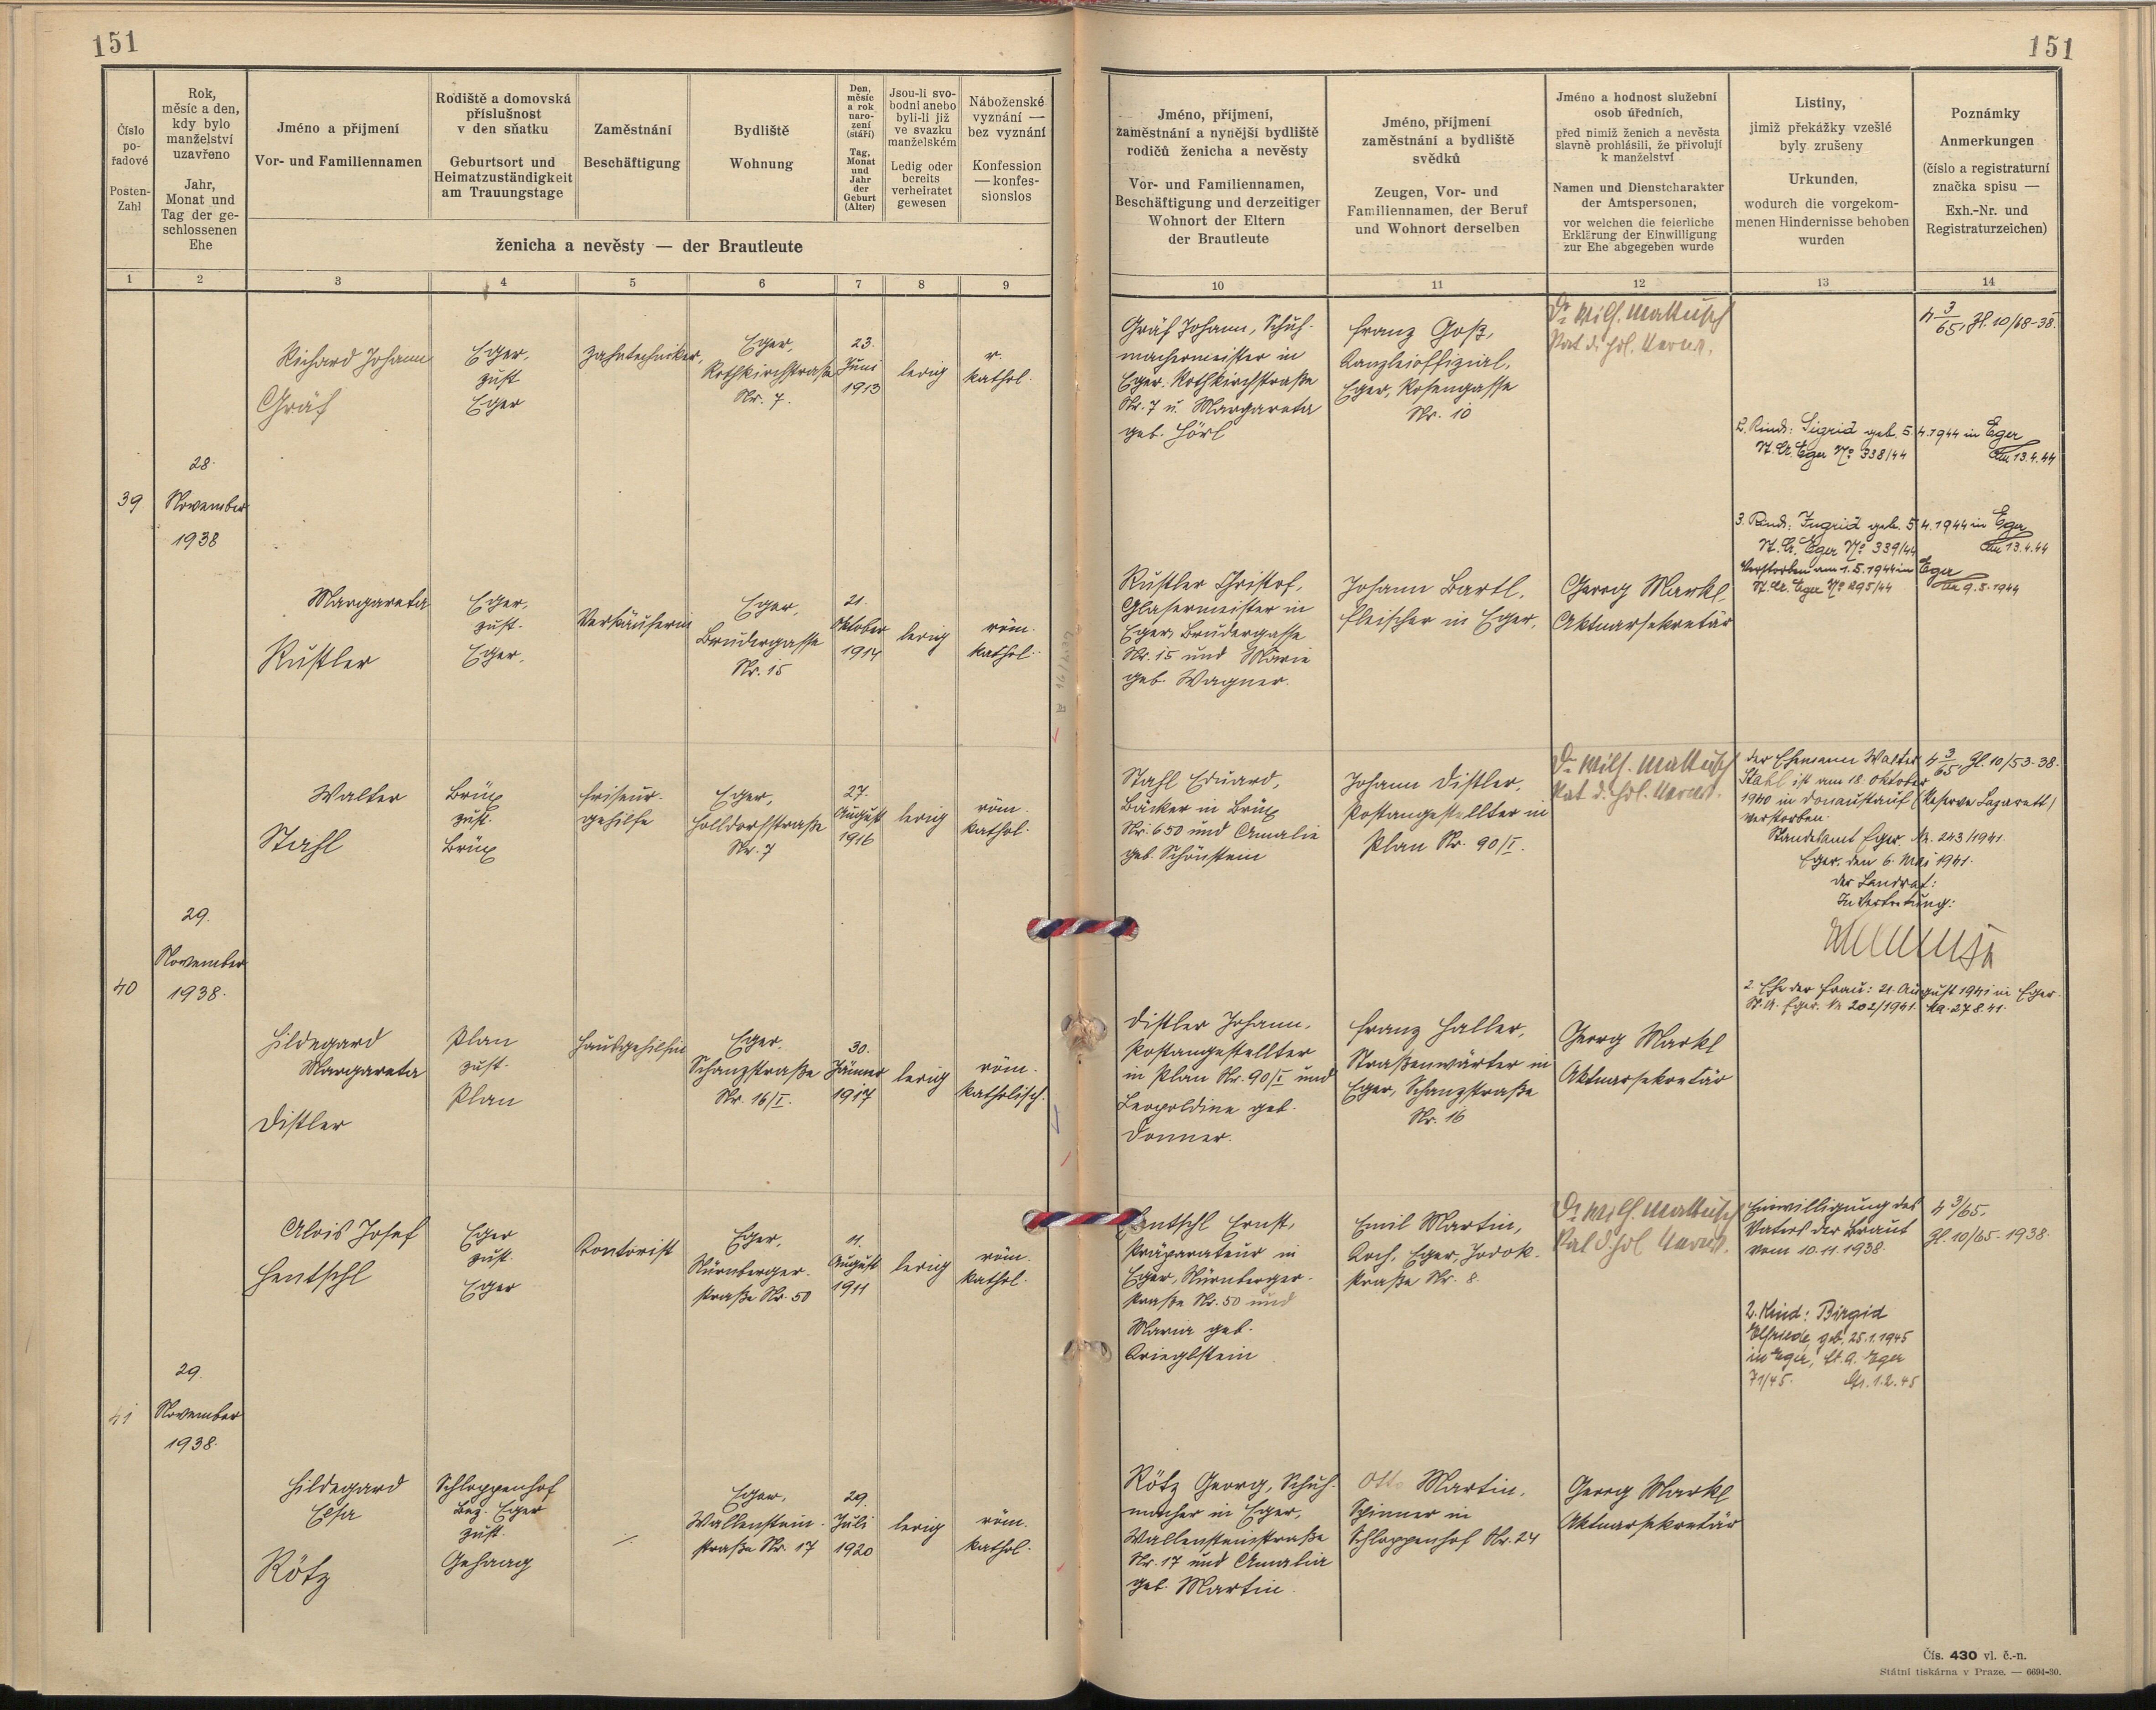 151
151
Číslo
po-
řadové
Posten-
Zahl
Rok,
měsíc a den,
kdy bylo
manželství
uzavřeno
Jahr,
Monat und
Tag der ge-
schlossenen
Ehe
Jméno a příjmení
Vor- und Familiennamen
Rodiště a domovská
příslušnost
v den sňatku
Geburtsort und
Heimatzuständigkeit
am Trauungstage
Zaměstnání
Beschäftigung
Bydliště
Wohnung
Den,
měsíc
a rok
naro-
zení
(stáří)
Tag,
Monat
und
Jahr
der
Geburt
(Alter)
Jsou-li svo-
bodni anebo
byli-li již
ve svazku
manželském
Ledig oder
bereits
verheiratet
gewesen
Náboženské
vyznání —
bez vyznání
Konfession
— konfes-
sionslos
ženicha a nevěsty — der Brautleute
Jméno, příjmení,
zaměstnání a nynější bydliště
rodičů ženicha a nevěsty
Vor- und Familiennamen,
Beschäftigung und derzeitiger
Wohnort der Eltern
der Brautleute
Jméno, příjmení
zaměstnání a bydliště
svědků
Zeugen, Vor- und
Familiennamen, der Beruf
und Wohnort derselben
Jméno a hodnost služební
osob úředních,
před nimiž ženich a nevěsta
slavně prohlásili, že přivolují
k manželství
Namen und Dienstcharakter
der Amtspersonen,
vor welchen die feierliche
Erklärung der Einwilligung
zur Ehe abgegeben wurde
Listiny,
jimiž překážky vzešlé
byly zrušeny
Urkunden,
wodurch die vorgekom-
menen Hindernisse behoben
wurden
Poznámky
Anmerkungen
(číslo a registraturní
značka spisu —
Exh.-Nr. und
Registraturzeichen)
1 2 3 4 5 6 7 8 9 10 11 12 13 14
39
28.
November
1938
Richard Johann
Gräf
Eger,
zust
Eger
Zahntechniker,
Eger,
Rothkirchstraße
Nr. 7.
23.
Juni
1913
ledig
r.
kathol.
Gräf Johann, Schuh-
machermeister in
Eger, Rothkirchstraße
Nr. 7 u. Margareta
geb. Hörl
Franz Goß,
Kanzleioffizial,
Eger, Rosengasse
Nr. 10
Dr Wilh. Mattusch
Rat d. pol. Verw.
4 3/65, Zl. 10/68-38.
2. Kind: Sigrid geb. 5.4.1944 in Eger
St. A. Eger No 338/44
13.4.44
3. Kind: Ingrid geb. 5.4.1944 in Eger
St. A. Eger No 339/44
13.4.44
Verstorben am 1.5.1944 in Eger
St. A. Eger No 295/44
9.5.1944
Margareta
Rustler
Eger,
zust.
Eger.
Verkäuferin
Eger,
Brudergasse
Nr. 15
21.
Oktober
1914
ledig
röm.
kathol.
Rustler Christof,
Glasermeister in
Eger, Brudergasse
Nr. 15 und Marie
geb. Wagner.
Johann Bartl,
Fleischer in Eger.
Georg Markl
Aktuarsekretär
40
29.
November
1938.
Walter
Stahl
Brüx
zust.
Brüx
Friseur-
gehilfe
Eger,
Holldorfstraße
Nr. 7
27.
August
1916
ledig
röm.
kathol.
Stahl Eduard,
Bäcker in Brüx
Nr. 650 und Amalie
geb. Schönstein
Johann Distler,
Postangestellter in
Plan Nr. 90/I.
Dr Wilh. Mattusch
Rat d. pol. Verw.
der Ehemann Walter
Stahl ist am 18. Oktober
1940 in Donaustauf (Reserve Lazarett)
verstorben.
Standesamt Eger, Nr. 243/1941.
Eger, den 6. Mai 1941.
der Landrat:
In Vertretung:
4 3/65, Zl. 10/53-38.
2. Ehe der Frau: 21. August 1941 in Eger.
St. A. Eger. Nr 202/1941. 27.8.41.
Hildegard
Margareta
Distler
Plan
zust.
Plan
Hausgehilfin
Eger.
Schanzstraße
Nr. 16/I.
30.
Jänner
1917
ledig
röm.
katholisch.
Distler Johann,
Postangestellter
in Plan Nr. 90/I und
Leopoldine geb.
Donner.
Franz Haller,
Straßenwärter in
Eger, Schanzstraße
Nr. 16
Georg Markl
Aktuarsekretär
41
29.
November
1938.
Alois Josef
Hentschl
Eger
zust.
Eger
Kontorist
Eger,
Nürnberger-
straße Nr. 50
11.
August
1911
ledig
röm.
kathol.
Hentschl Ernst,
Präparateur in
Eger, Nürnberger-
straße Nr. 50 und
Maria geb.
Krieglstein
Emil Martin,
Koch, Eger, Jodok-
straße Nr. 8.
Dr Wilh. Mattusch
Rat d. pol Verw.
Einwilligung des
Vaters der Braut
vom 10.11.1938.
4 3/65.
Zl. 10/65.-1938.
2. Kind: Birgid
Elfriede, geb. 25.1.1945
in Eger, St. A. Eger
71/45. 1.2.45
Hildegard
Elsa
Rötz
Schloppenhof
Bez. Eger
zust.
Gehaag
—
Eger,
Wallenstein-
straße Nr. 17
29.
Juli
1920
ledig
röm.
kathol.
Rötz Georg, Schuh-
macher in Eger,
Wallensteinstraße
Nr. 17 und Amalia
geb. Martin.
Otto Martin,
Spinner in
Schloppenhof Nr. 24
Georg Markl
Aktuarsekretär
Čís. 430 vl. č.-n.
Státní tiskárna v Praze. — 6694-30.